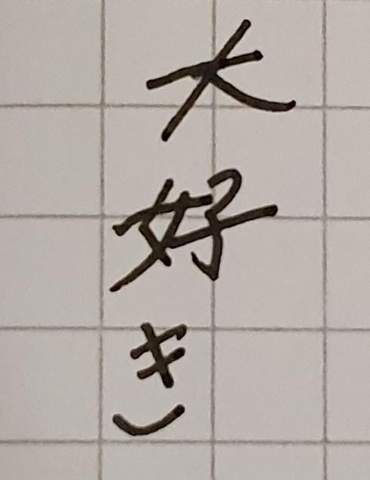 大好き